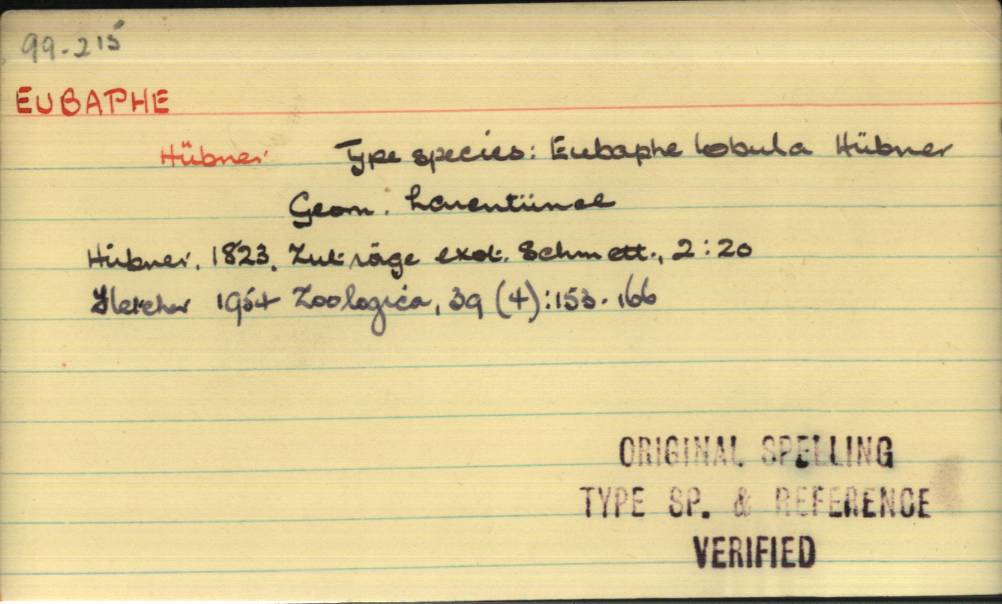 99-215
EUBAPHE
Hübner Type species: Eubaphe lobula Hübner
Geom. Larentiinae
Hübner, 1823, Zuträge exot. Schmett., 2:20
Fletcher 1954 Zoologica, 39 (4):153-166
ORIGINAL SPELLING
TYPE SP. & REFERENCE
VERIFIED